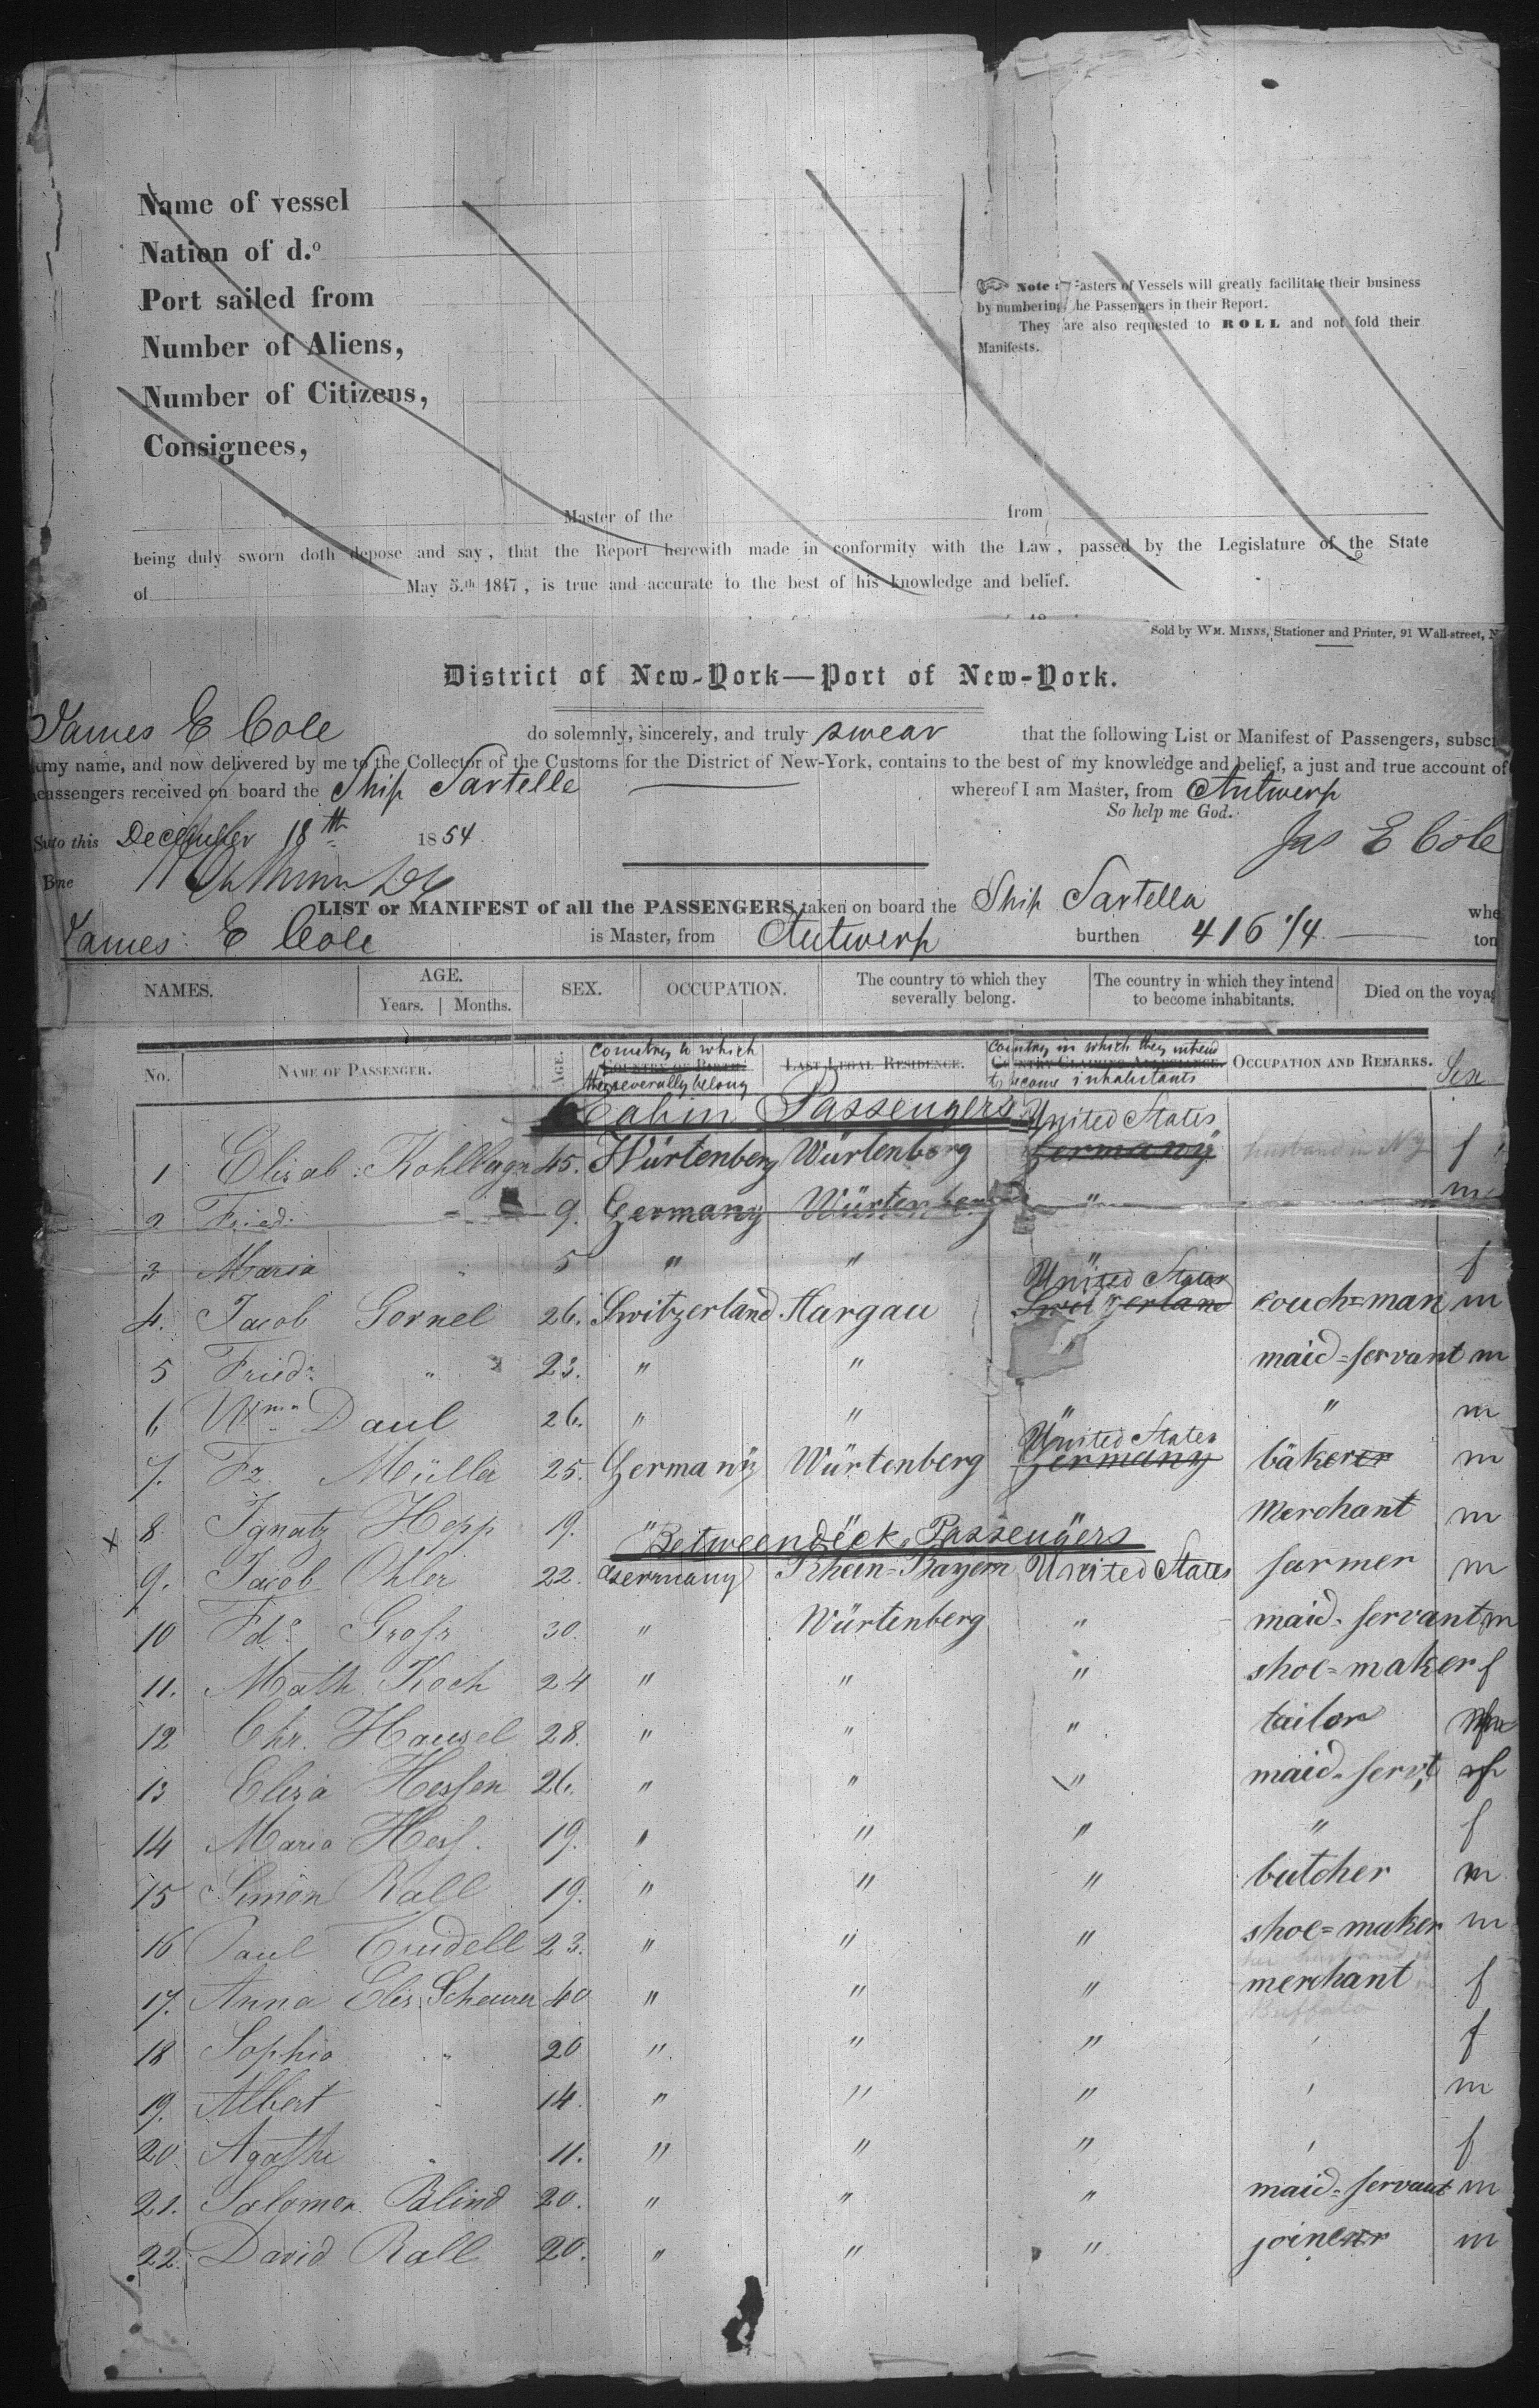 Name of vessel
Nation of d.º
Port sailed from
Number of Aliens,
Number of Citizens,
Consignees,
Note : Masters of Vessels will greatly facilitate their business
by numbering the Passengers in their Report.
They are also requested to ROLL and not fold their
Manifests.
Master of the from
being duly sworn doth depose and say, that the Report herewith made in conformity with the Law, passed by the Legislature of the State
of May 5.th 1847, is true and accurate to the best of his knowledge and belief.
Sold by WM. MINNS, Stationer and Printer, 91 Wall-street, N
District of New-York—Port of New-York.
James E Cole do solemnly, sincerely, and truly swear that the following List or Manifest of Passengers, subsc
my name, and now delivered by me to the Collector of the Customs for the District of New-York, contains to the best of my knowledge and belief, a just and true account of
passengers received on board the Ship Sartelle whereof I am Master, from Antwerp
So help me God.
to this December 18th 1854.
Jas E Cole
LIST or MANIFEST of all the PASSENGERS taken on board the Ship Sartella whe
James E Cole is Master, from Antwerp burthen 416 1/4 ton
NAMES. AGE. Years. Months. SEX. OCCUPATION. The country to which they severally belong. The country in which they intend to become inhabitants. Died on the voyag
No. NAME OF PASSENGER. AGE. Country to which COUNTRY OF BIRTH. they severally belong LAST LEGAL RESIDENCE. Country in which they intend COUNTRY CLAIMING ALLEGIANCE. to become inhabitants OCCUPATION AND REMARKS. Sex
Cabin Passengers
United States
1 Elisab: 45. Würtenberg Würtenberg Germany husband in NY f
2 Fried: " 9. Germany Würtenberg " m
3 Maria " 5 " " " f
United States
4. Jacob Gornel 26. Switzerland Hargau Switzerland couch=man m
5 Friedr " 23. " " " maid=servant m
6 Daul 26. " " " " m
United States
7. Fz. Müller 25. Germany Würtenberg Germany bäkerer m
x 8. Ignatz Hepp 19. " " " Merchant m
Betweendëck Passengërs
9. Jacob Ohler 22. Germany Rhein=Bayern United States farmer m
10 Fd. Grofs 30. " Würtenberg " maid=servant m
11. Math Koch 24 " " " shoe=maker f
12 Chr. Hausel 28. " " " tailor
13 Eliza Hessen 26. " " " maid=servt f
14 Maria Hess. 19. " " " " f
15 Simon Rall 19. " " " butcher m
16 Paul 23. " " " shoe=maker m
her husband is
17. Anna Elis. Scheurer 40 " " " merchant in f
Buffalo
18 Sophia " 20 " " " ' f
19. Albert " 14. " " " ' m
20. Agathe " 11. " " " ' f
21. Salomon Blind 20. " " " maid=servant m
22. David Rall 20. " " " joinerer m